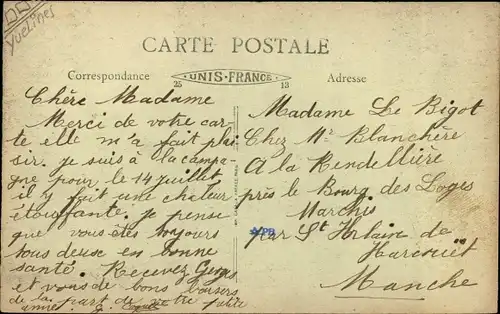 Yvelines
CARTE POSTALE
Correspondance
UNIS-FRANCE
25 13
Adresse
Chère Madame
Merci de votre car-
te elle m'a fait plai
sir. je suis à la campa-
gne pour le 14 juillet
il y fait une chaleur
étouffante. Je pense
que vous êtes toujours
tous deux en bonne
santé. Recevez
et vous de bons baisers
de la part de votre petite
amie. G.
Madame Le Bigot
Chez Mr Blanchère
A la Rendellière
près le Bourg des Loges
Marchis
par St Hilaire de
Harcouët
Manche
APB